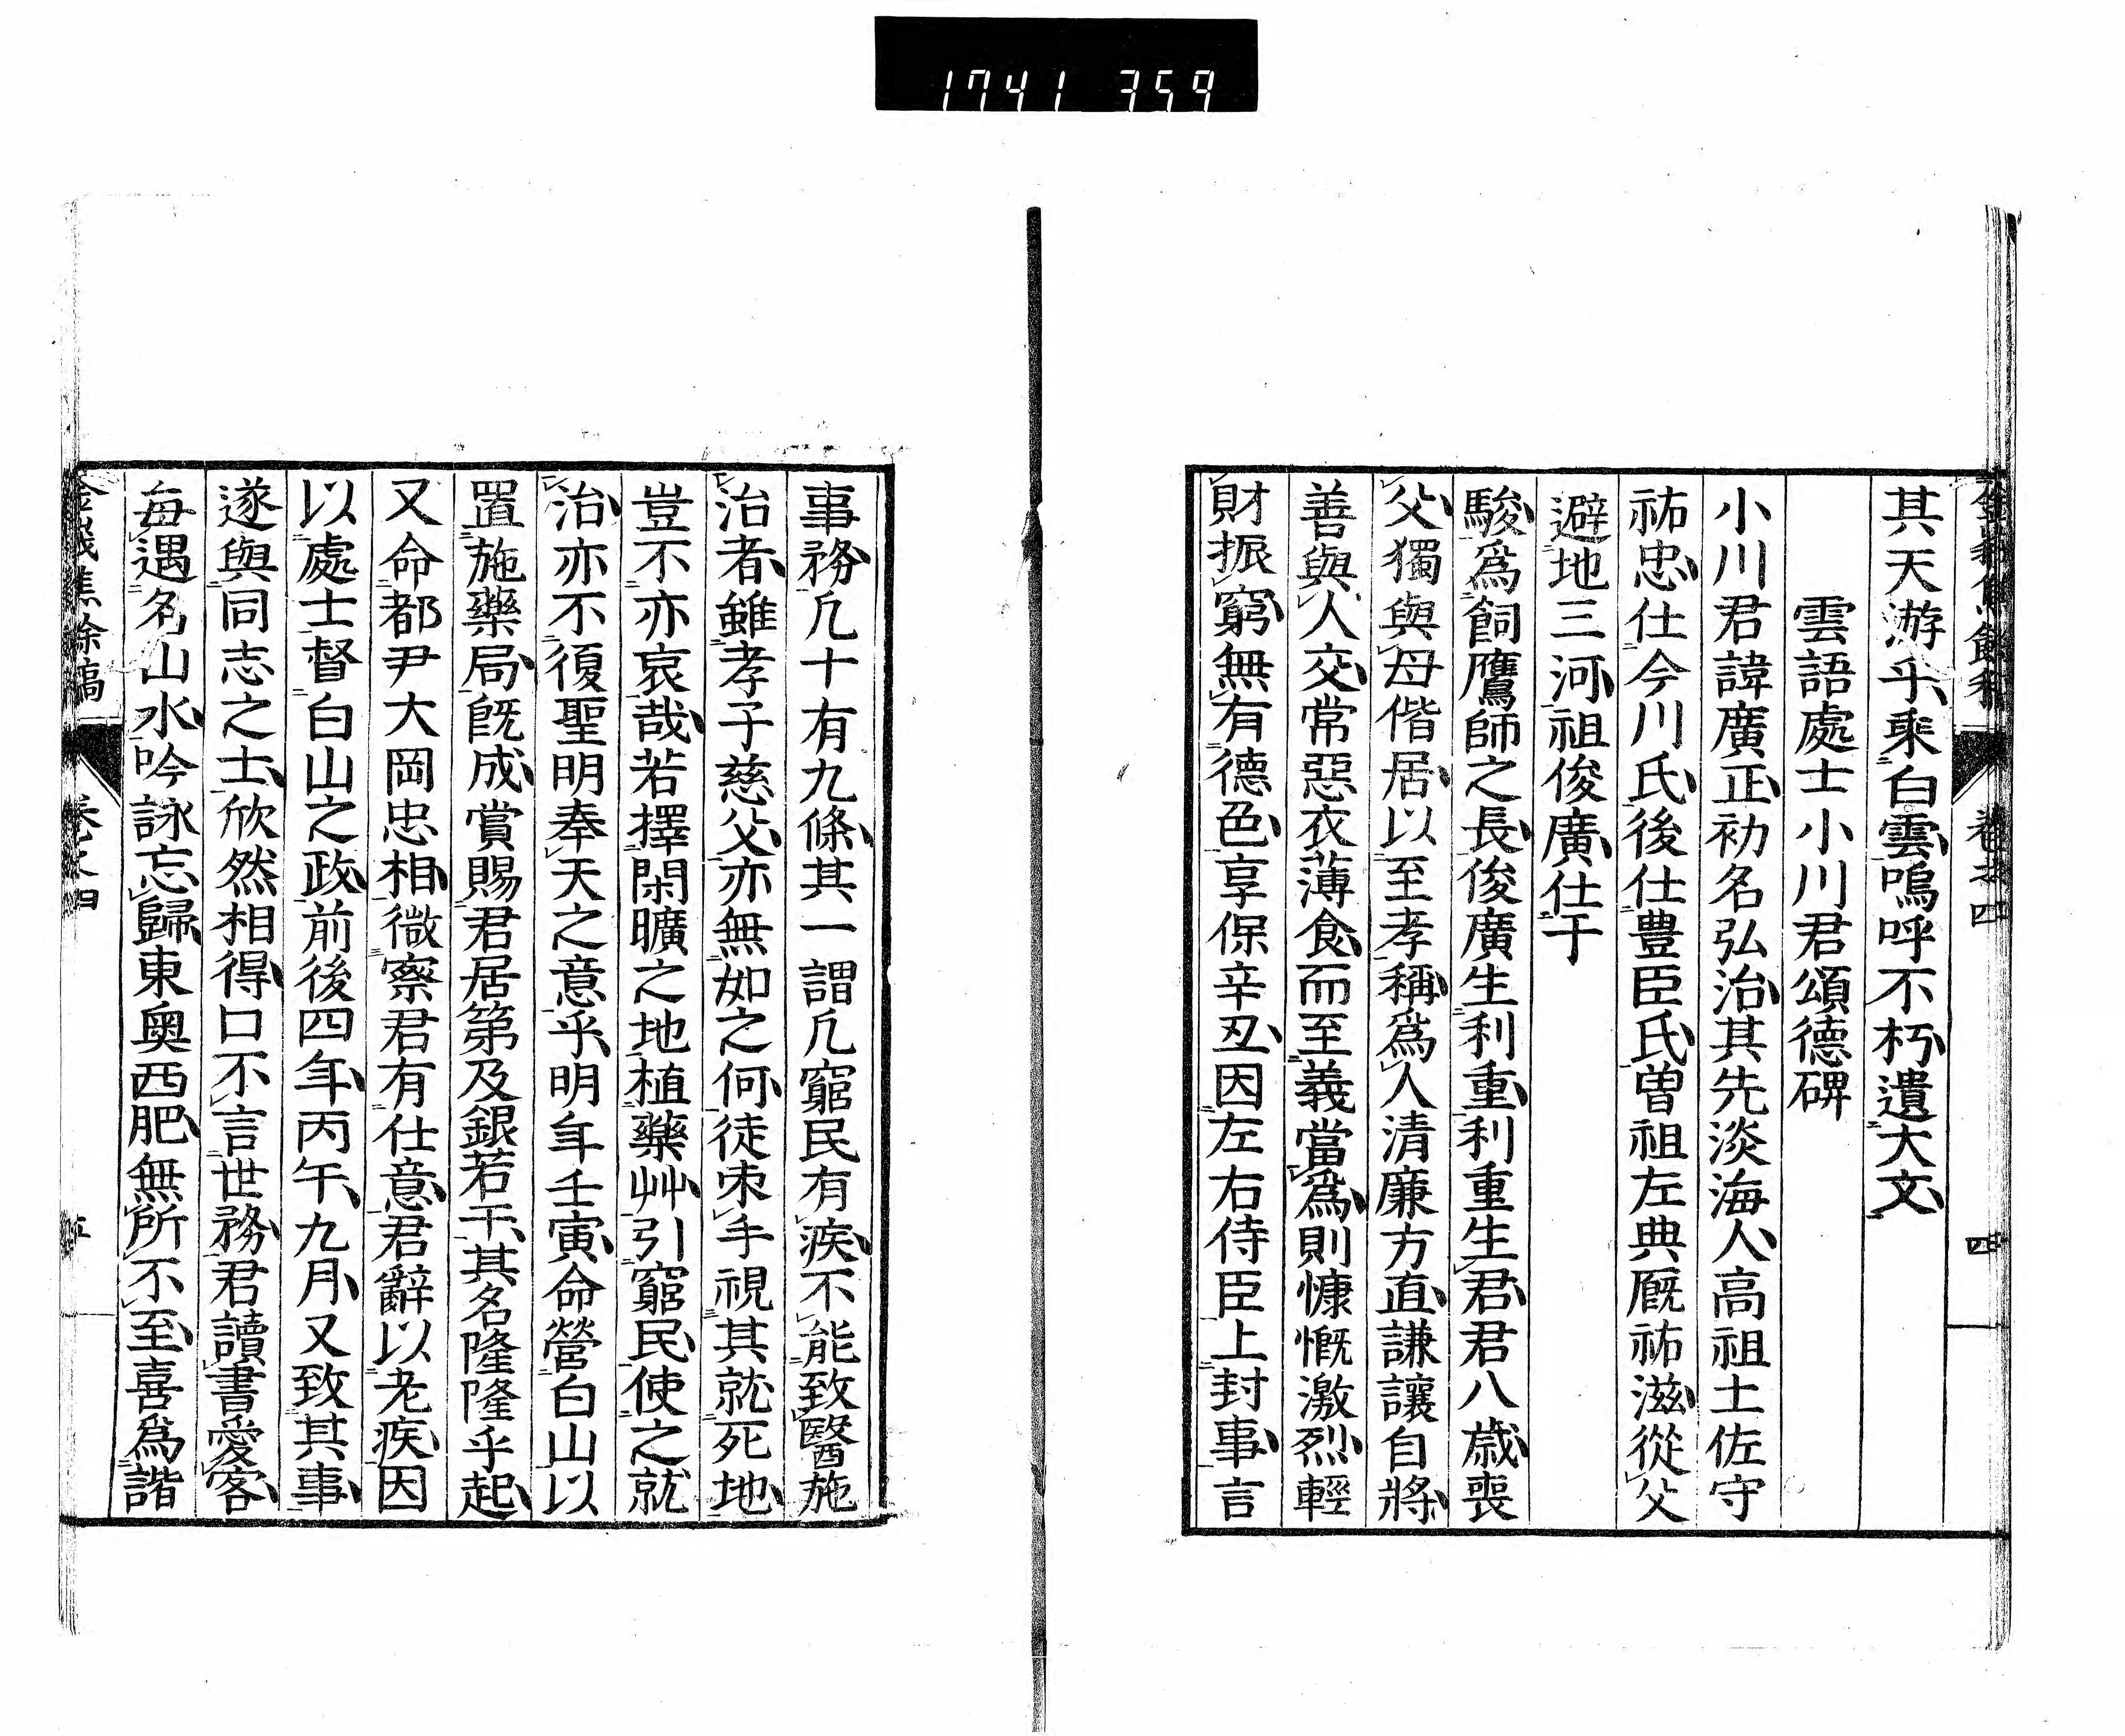 1741 359
其天游乎乘白雲嗚呼不朽遺大文
雲語處士小川君頌德碑
小川君諱廣正初名弘治其先淡海人高祖土佐守
祐忠仕今川氏後仕豊臣氏曽祖左典厩祐滋從父
避地三河祖俊廣仕于
駿爲飼鷹師之長俊廣生利重利重生君君八歳喪
父獨與母偕居以至孝稱爲人清廉方直謙讓自將
善與人交常惡衣薄食而至義當爲則慷慨激烈輕
財振窮無有德色享保辛丑因左右侍臣上封事言
事務凢十有九條其一謂凢窮民有疾不能致醫施
治者雖孝子慈父亦無如之何徒束手視其就死地
豈不亦哀哉若擇閑曠之地植藥艸引窮民使之就
治亦不復聖明奉天之意乎明年壬寅命營白山以
置施藥局既成賞賜君居第及銀若干其名隆隆乎起
又命都尹大岡忠相微察君有仕意君辭以老疾因
以處士督白山之政前後四年丙午九月又致其事
遂與同志之士欣然相得口不言世務君讀書愛客
每遇名山水吟詠忘歸東奥西肥無所不至喜爲諧
卷之四
四